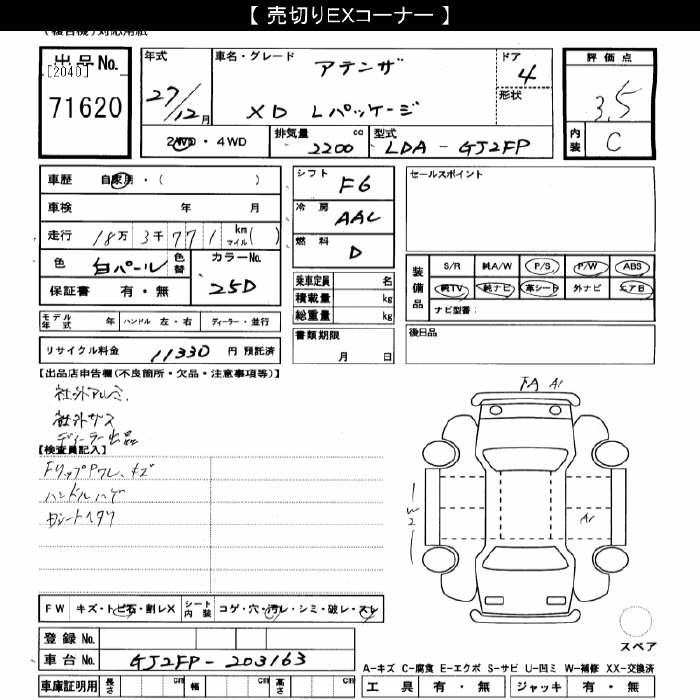 【 売切りEXコーナー 】
(複合機)対応用紙
出品No.
[2040]
71620
年式
27/12月
車名・グレード
アテンザ
XD Lパッケージ
ドア
4
形状
評価点
3.5
内装
C
2WD・4WD
排気量
2200
cc
型式
LDA - GJ2FP
車歴 自家用・( )
車検 年 月
走行 18万 3千 771 km マイル( )
色 白パール 色替
カラーNo.
25D
保証書 有・無
シフト F6
冷房 AAC
燃料 D
乗車定員 名
積載量 kg
総重量 kg
セールスポイント
装備品
S/R 純A/W P/S P/W ABS
純TV 純ナビ 革シート 外ナビ エアB
ナビ型番:
モデル年式 年 ハンドル 左・右 ディーラー・並行
書類期限
月 日
後日品
リサイクル料金 11330 円 預託済
【出品店申告欄(不良箇所・欠品・注意事項等)】
社外アルミ、
社外サス
ディーラー出品
【検査員記入】
FリップPワレ、キズ
ハンドルハゲ
Dシートヘタリ
FA A1
W2
A1
FW キズ・トビ石・割レX
シート内装 コゲ・穴・汚レ・シミ・破レ・スレ
登録 No.
車台 No. GJ2FP-203163
車庫証明用 長さ cm 幅 cm 高さ cm
スペア
A-キズ C-腐食 E-エクボ S-サビ U-凹ミ W-補修 XX-交換済
工具 有・無 ジャッキ 有・無